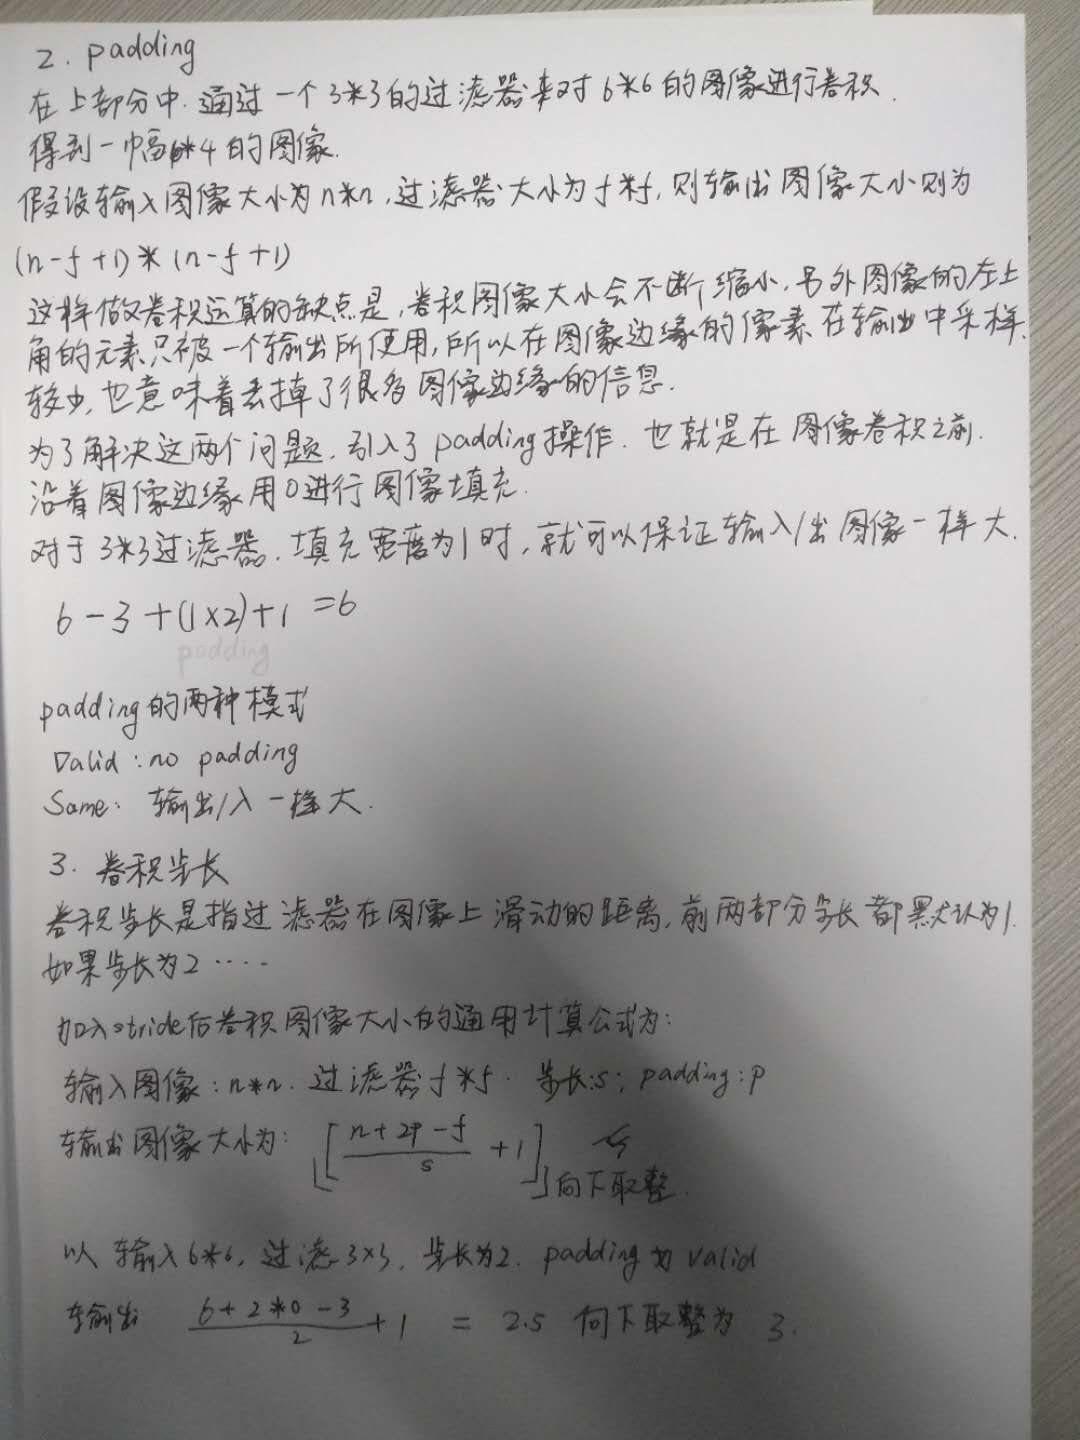 2. padding
在上部分中. 通过一个3*3的过滤器来对6*6的图像进行卷积.
得到一幅*4的图像.
假设输入图像大小为n*n,过滤器大小为f*f,则输出图像大小则为
(n-f+1)*(n-f+1)
这样做卷积运算的缺点是,卷积图像大小会不断缩小,另外图像的左上
角的元素只被一个输出所使用,所以在图像边缘的像素在输出中采样
较少,也意味着丢掉了很多图像边缘的信息.
为了解决这两个问题,引入了padding操作.也就是在图像卷积之前.
沿着图像边缘用0进行图像填充.
对于3*3过滤器.填充宽度为1时,就可以保证输入/出图像一样大.
6-3+(1×2)+1=6
padding
padding的两种模式
Valid:no padding
Same: 输出/入一样大.
3. 卷积步长
卷积步长是指过滤器在图像上滑动的距离,前两部分步长都默认为1.
如果步长为2·····
加入stride后卷积图像大小的通用计算公式为:
输入图像:n*n. 过滤器f*f. 步长:s; padding:p
输出图像大小为: ⌊[(n+2p-f)/s+1]⌋
向下取整.
以输入6*6,过滤3×3,步长为2. padding为valid
输出 (6+2*0-3)/2+1 = 2.5 向下取整为 3.